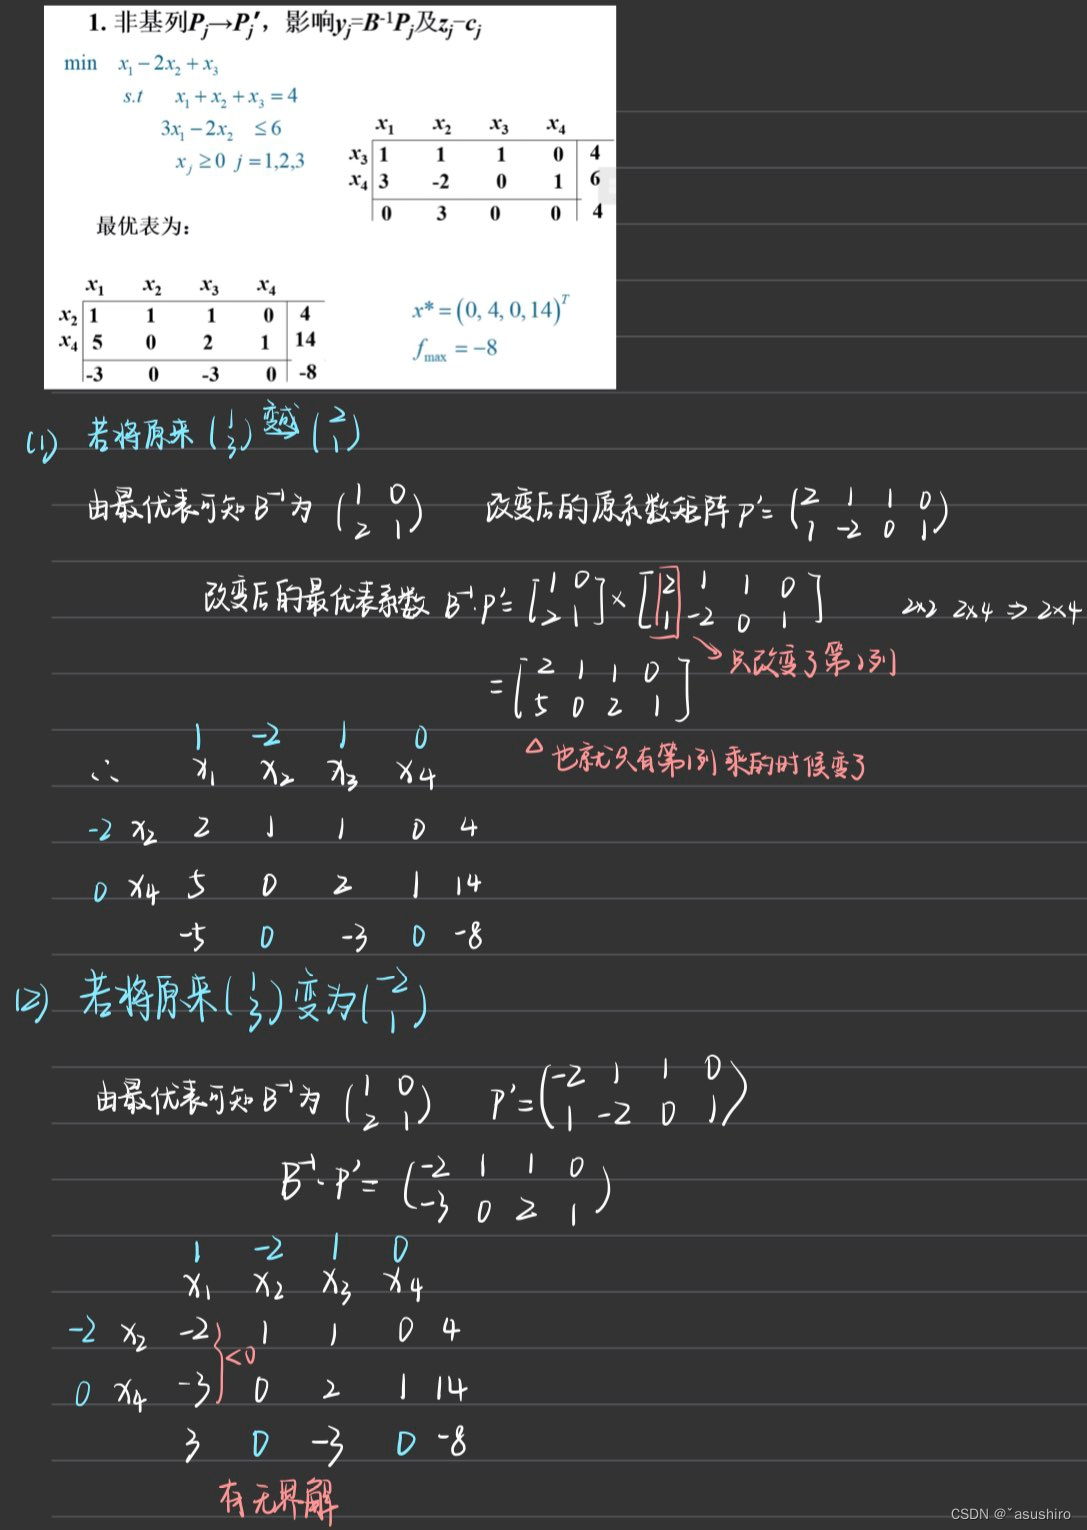 1. 非基列Pj→Pj′，影响yj=B⁻¹Pj及zj−cj
min x₁−2x₂+x₃
s.t x₁+x₂+x₃=4
3x₁−2x₂ ≤6
xj≥0 j=1,2,3
x₁ x₂ x₃ x₄
x₃ 1 1 1 0 4
x₄ 3 -2 0 1 6
0 3 0 0 4
最优表为：
x₁ x₂ x₃ x₄
x₂ 1 1 1 0 4
x₄ 5 0 2 1 14
-3 0 -3 0 -8
x*=(0,4,0,14)ᵀ
fmax=−8
(1) 若将原来(1 3)变成(2 1)
由最优表可知B⁻¹为(1 0 2 1) 改变后的原系数矩阵P′=(2 1 1 0 1 -2 0 1)
改变后的最优表系数 B⁻¹·P′=[1 0 2 1]×[2 1 1 0 1 -2 0 1] 2×2 2×4 ⇒ 2×4
→只改变了第1列
=[2 1 1 0 5 0 2 1]
△也就只有第1列乘的时候变了
1 -2 1 0
∴ x₁ x₂ x₃ x₄
-2 x₂ 2 1 1 0 4
0 x₄ 5 0 2 1 14
-5 0 -3 0 -8
(2) 若将原来(1 3)变为(-2 1)
由最优表可知B⁻¹为(1 0 2 1) P′=(-2 1 1 0 1 -2 0 1)
B⁻¹·P′=(-2 1 1 0 -3 0 2 1)
1 -2 1 0
x₁ x₂ x₃ x₄
-2 x₂ -2 1 1 0 4
<0
0 x₄ -3 0 2 1 14
3 0 -3 0 -8
有无界解
CSDN @ˇasushiro